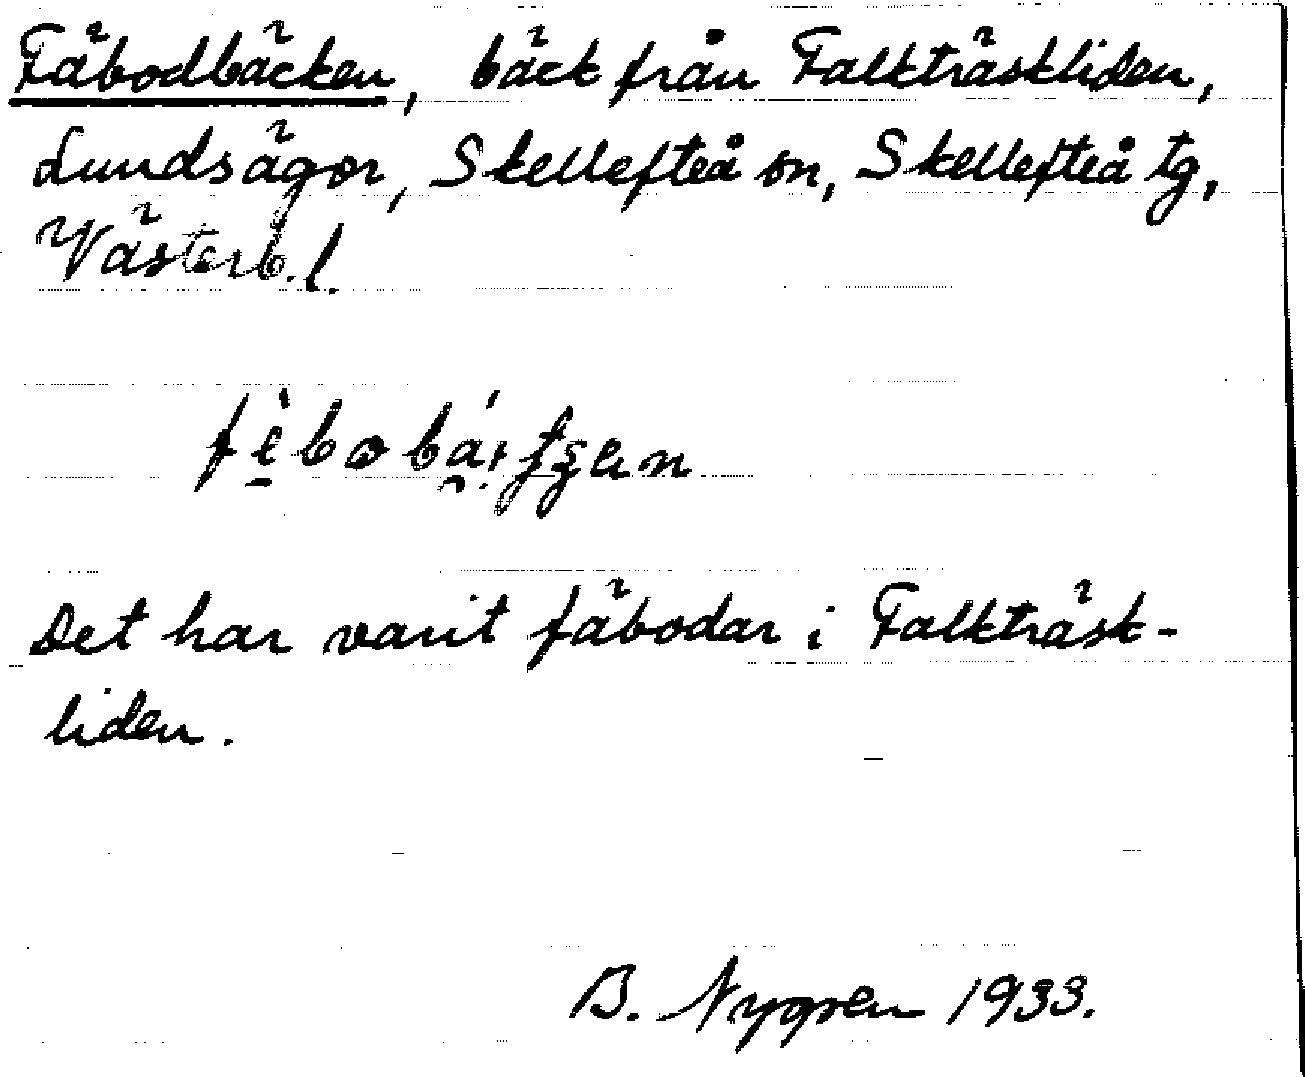 Fäbodbäcken, bäck från Falkträskliden,
Lundsägor, Skellefteå sn, Skellefteå tg,
Västerb. l.
Det har varit fäbodar i Falkträsk-
liden.
B. Nygren 1933.